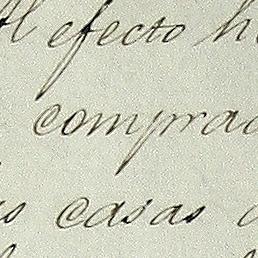 Al efecto h
comprad
as casas